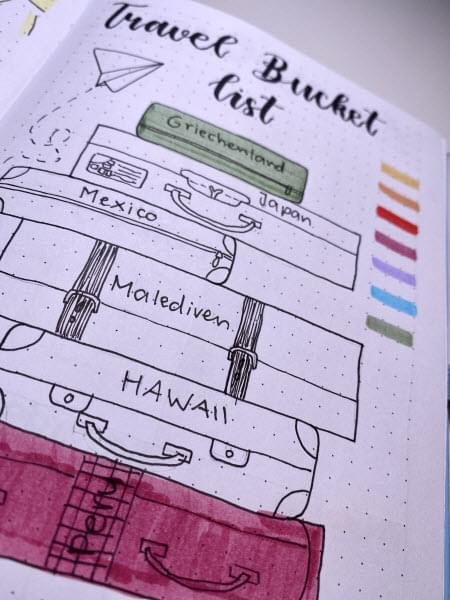 Travel Bucket
list
Griechenland
Japan
Mexico
Malediven
HAWAII
Peru